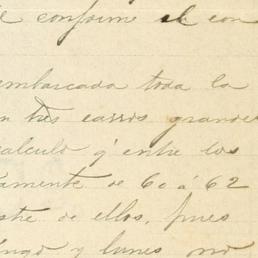 conforme el con
embarcada toda la
n tres carros grandes
calculo q' entre los
amente de 60 á 62
ste de ellos, pues
ingo y lunes no